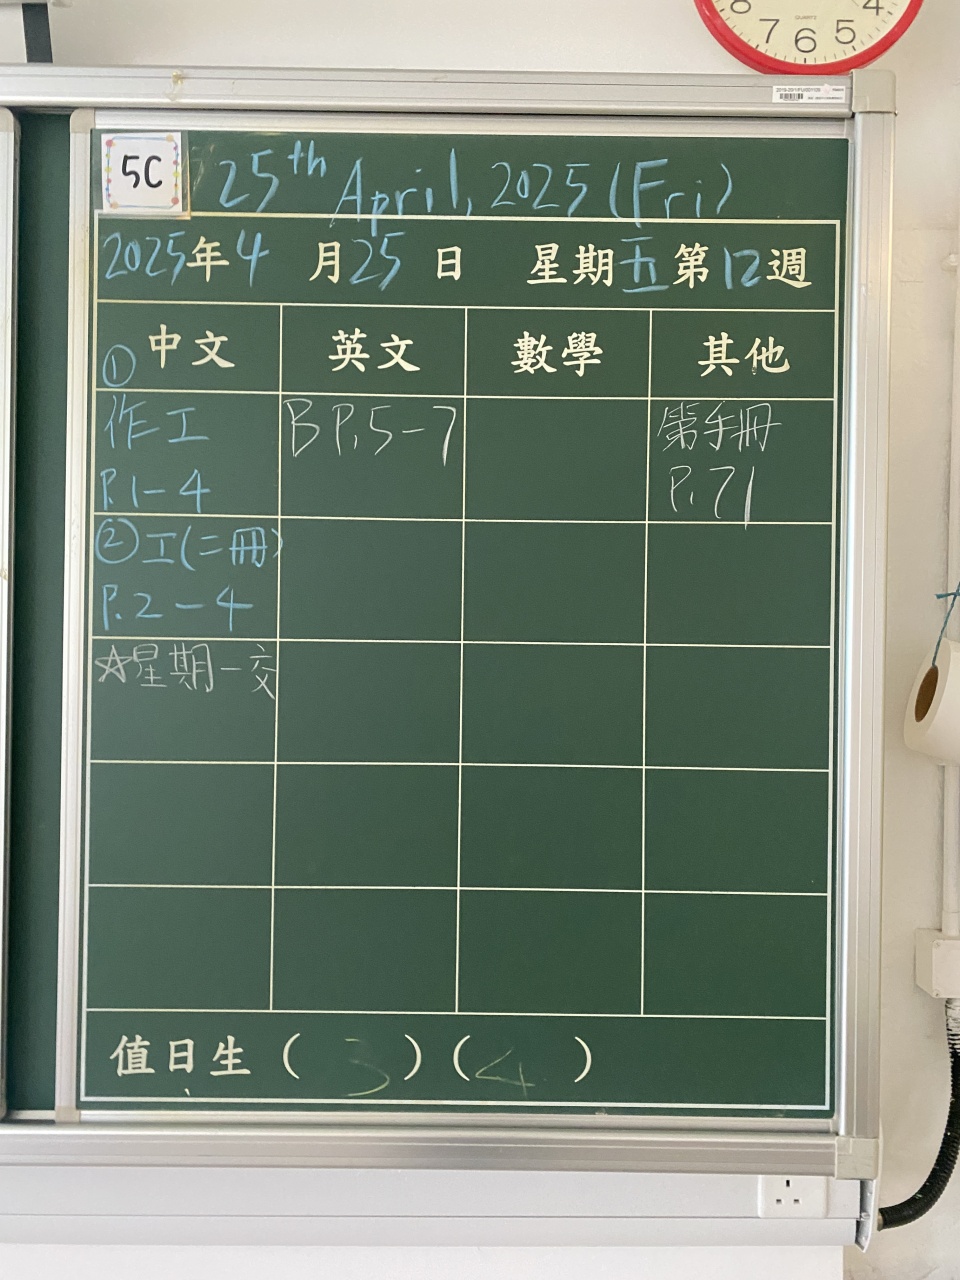 8 7 6 5 4
QUARTZ
5C
25th April, 2025 (Fri)
2025年4月25日 星期五第12週
中文 英文 數學 其他
①
作工
P.1-4
BP.5-7
第手冊
P.71
②工(二冊)
P.2-4
☆星期一交
值日生(3)(4)